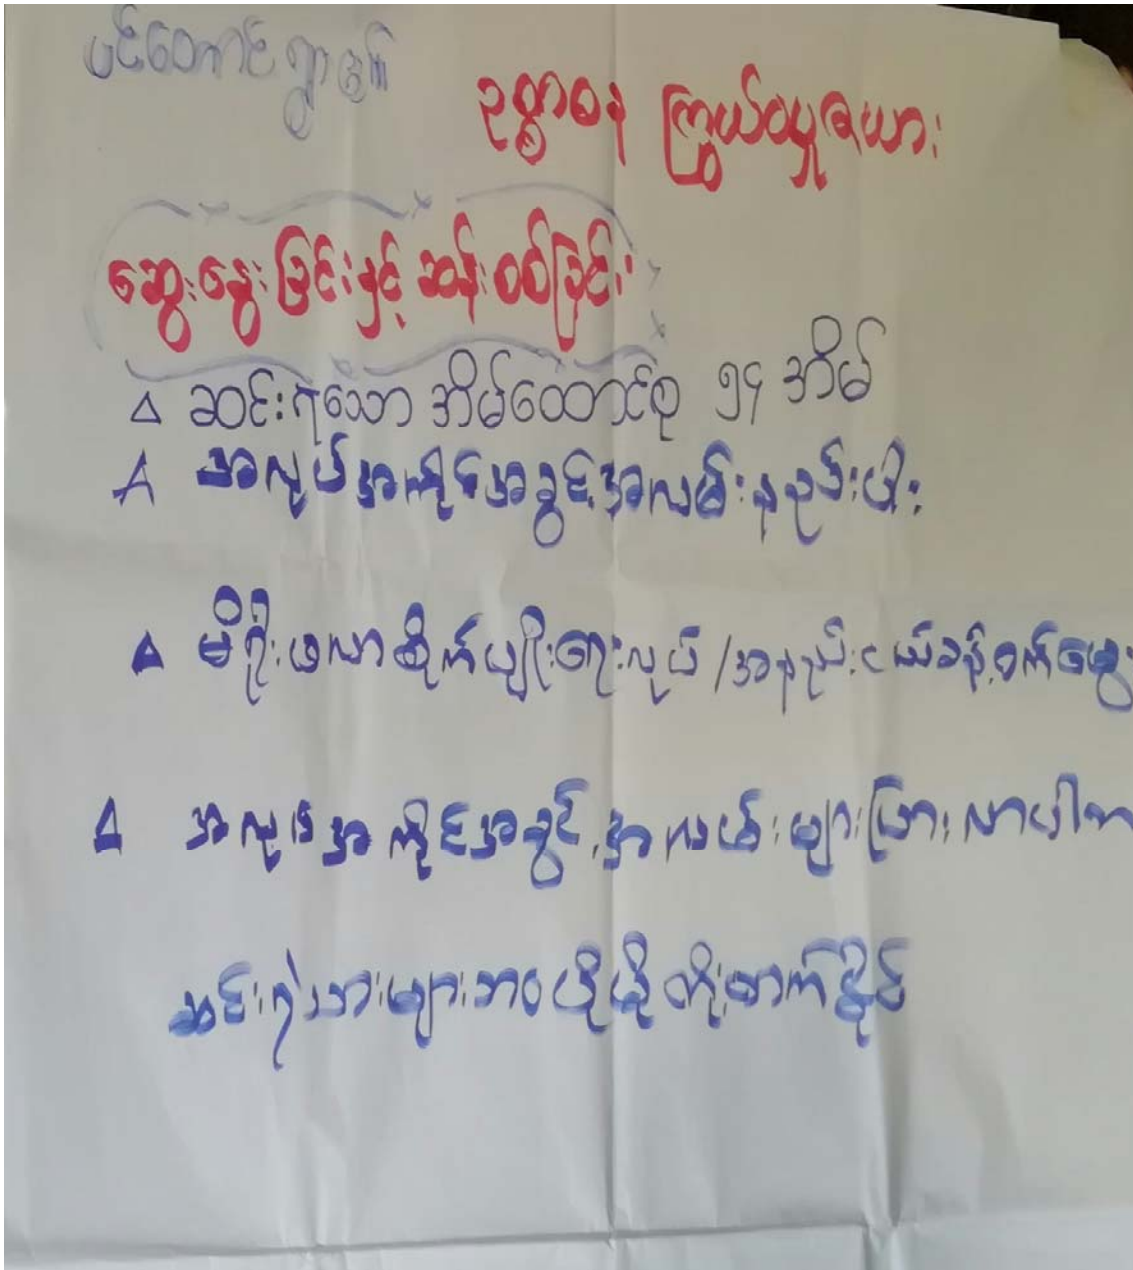 ပင်တောင်ရွာအုက်
ဥစ္စာဓန ကြွယ်ဝမှုဇယား
ဆွေးနွေးခြင်းနှင့် ဆန်းစစ်ခြင်း
∆ ဆင်းရဲသော အိမ်ထောင်စု ၅၄ အိမ်
∆ အလုပ်အကိုင်အခွင့်အလမ်းနည်းပါး
∆ မိရိုးဖလာစိုက်ပျိုးရေးလုပ် / အနည်းငယ်ခန့်ဝက်မွေး
∆ အလုပ်အကိုင်အခွင့်အလမ်းများခြားလာပါက
ဆင်းရဲသားများဘဝပိုမိုတိုးတက်နိုင်